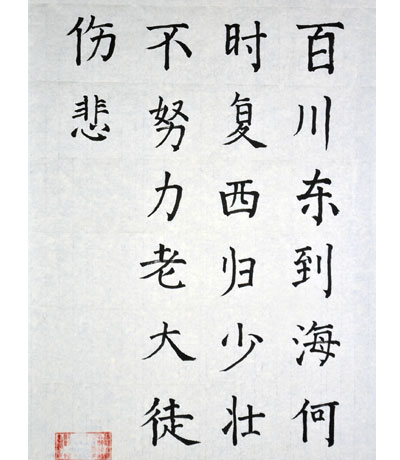 百川东到海何
时复西归少壮
不努力老大徒
伤悲